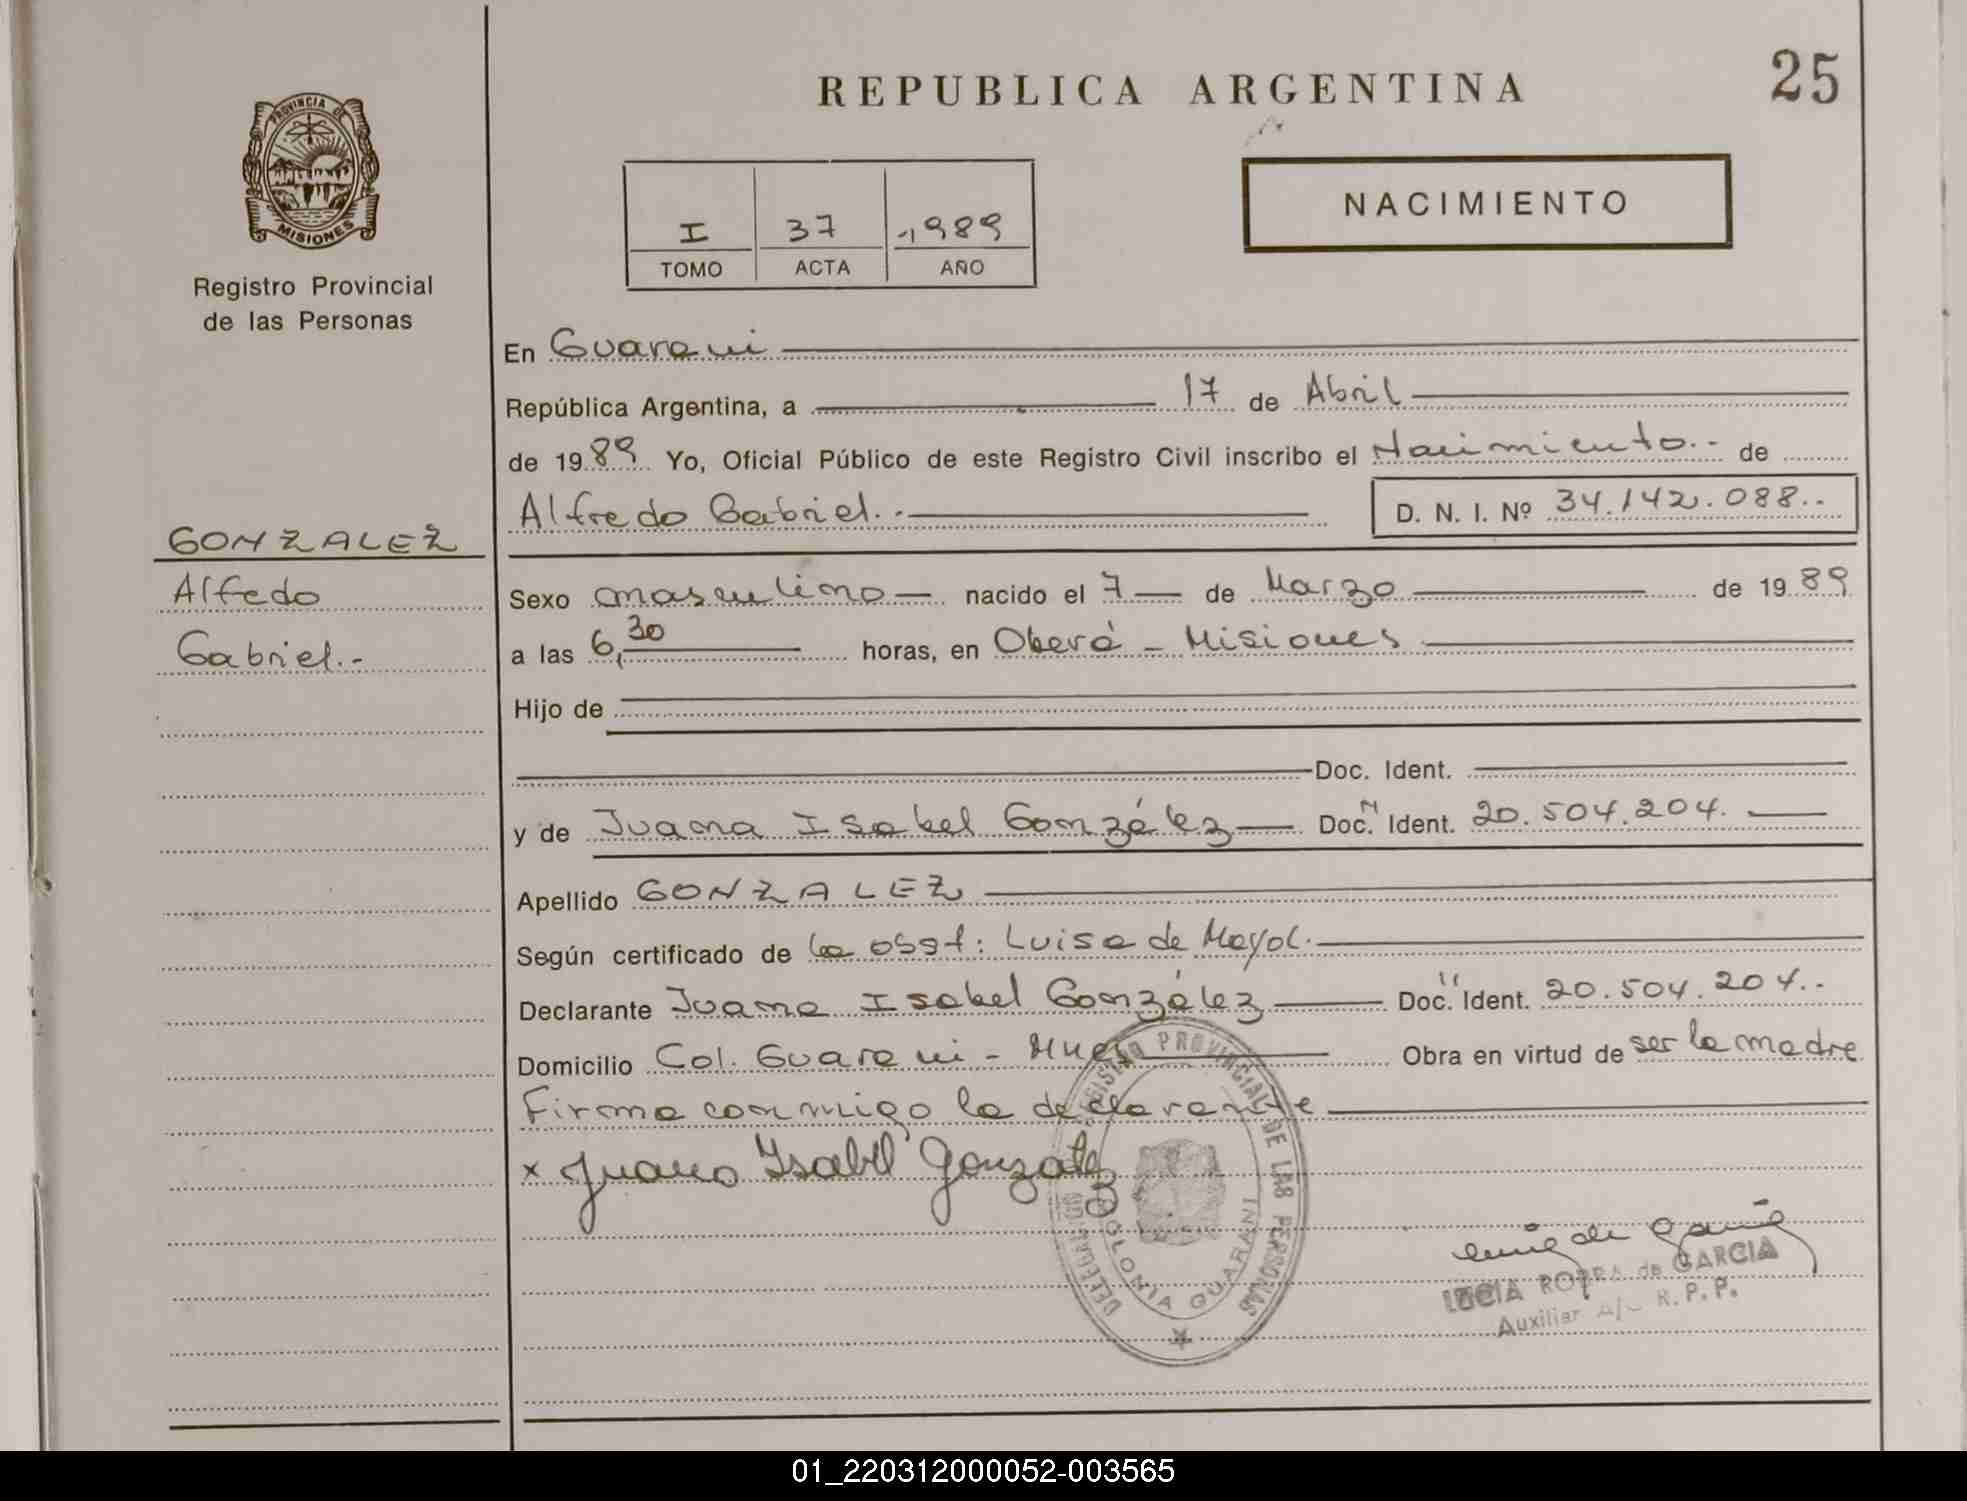 REPUBLICA ARGENTINA
25
PROVINCIA DE
MISIONES
Registro Provincial
de las Personas
I 37 1989
TOMO ACTA AÑO
NACIMIENTO
En Guarani
República Argentina, a 17 de Abril
de 1989 Yo, Oficial Público de este Registro Civil inscribo el Nacimiento.- de
Alfredo Gabriel.- D. N. I. Nº 34.142.088..
GONZALEZ
Alfedo
Gabriel.-
Sexo masculino nacido el 7 de Marzo de 1989
a las 6,30 horas, en Oberá - Misiones
Hijo de
Doc. Ident.
y de Juana Isabel González Doc. Ident. 20.504.204.
Apellido GONZALEZ
Según certificado de la obst: Luisa de Mayol.
Declarante Juana Isabel González Doc. Ident. 20.504.204..
Domicilio Col. Guarani - Mnes Obra en virtud de ser la madre
Firma conmigo la declarante
x Juana Isabel Gonzalez
REGISTRO PROVINCIAL DE LAS PERSONAS
COLONIA GUARANI
de GARCIA
Auxiliar A/C R. P. P.
01_220312000052-003565